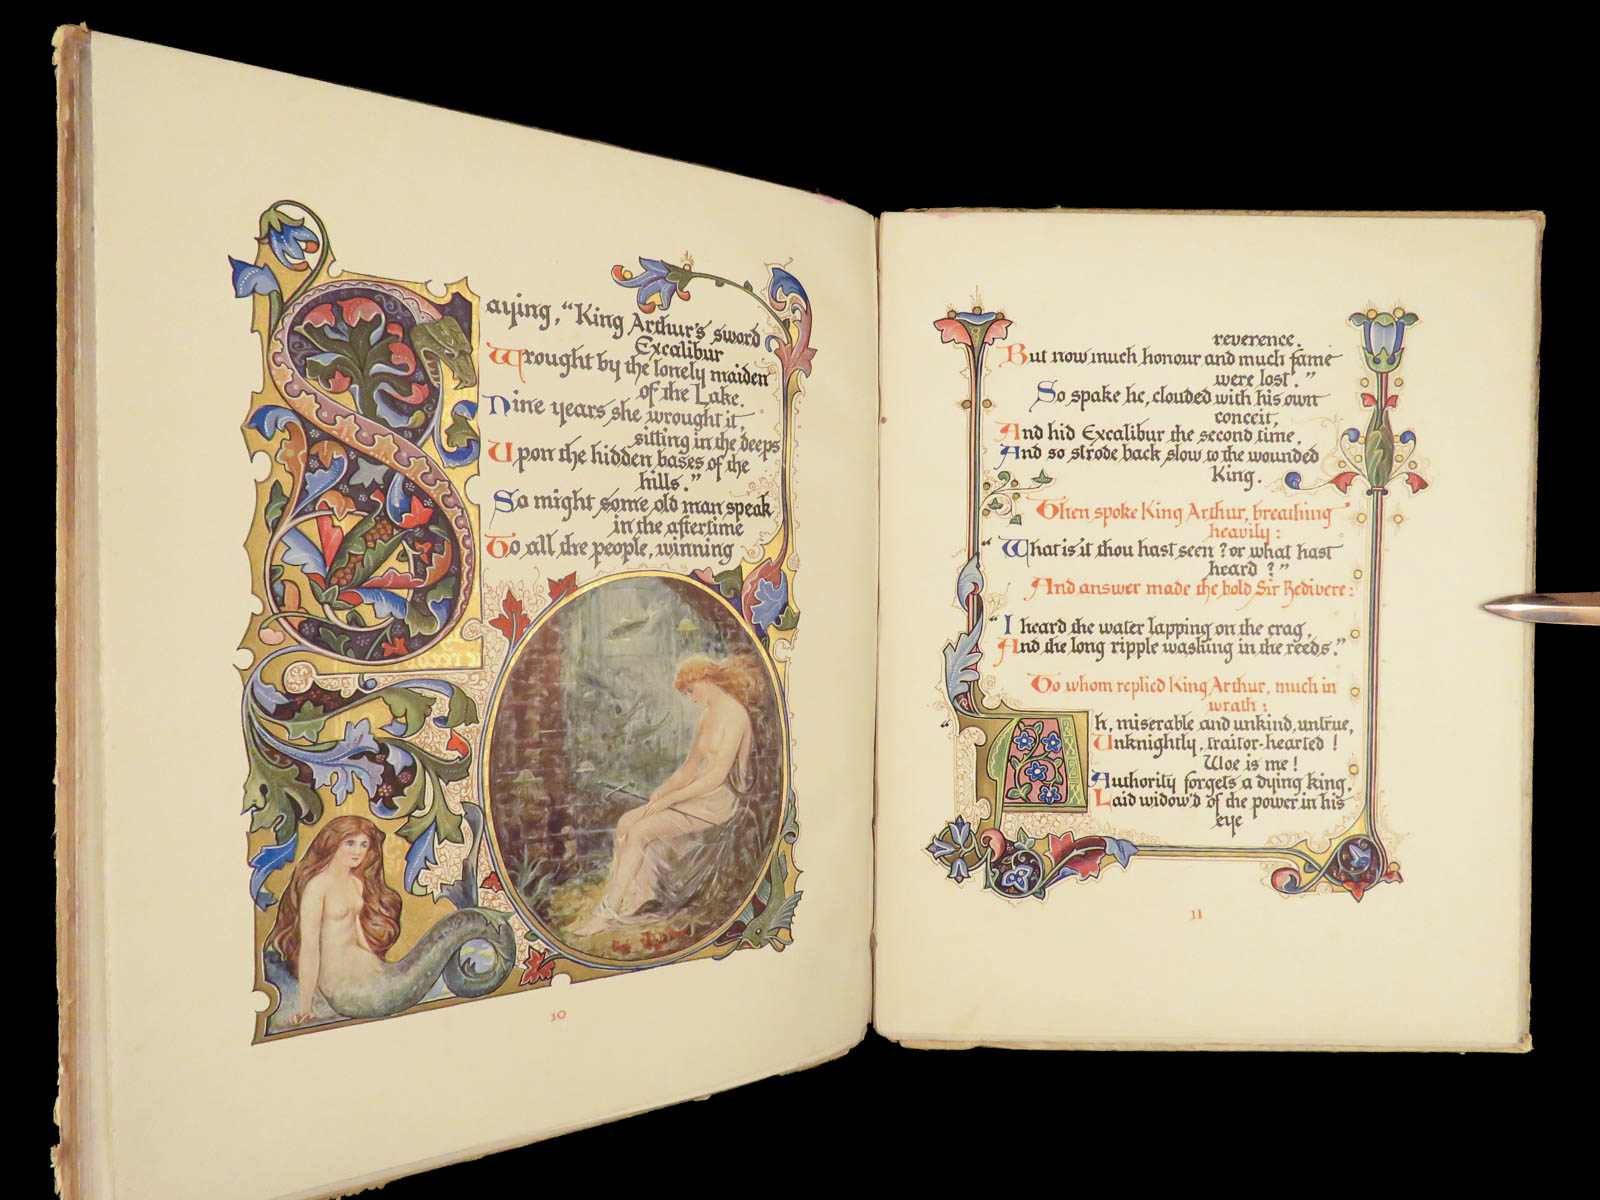 Saying, "King Arthur's sword
Excalibur
Wrought by the lonely maiden
of the Lake.
Nine years she wrought it,
sitting in the deeps
Upon the hidden bases of the
hills."
So might some old man speak
in the aftertime
To all the people, winning
10
reverence.
But now much honour and much fame
were lost."
So spake he, clouded with his own
conceit,
And hid Excalibur the second time,
And so strode back slow to the wounded
King.
Then spoke King Arthur, breathing
heavily:
"What is it thou hast seen? or what hast
heard?"
And answer made the bold Sir Bedivere:
"I heard the water lapping on the crag,
And the long ripple washing in the reeds."
To whom replied King Arthur, much in
wrath:
"Ah, miserable and unkind, untrue,
Unknightly, traitor-hearted!
Woe is me!
Authority forgets a dying king,
Laid widow'd of the power in his
eye
11